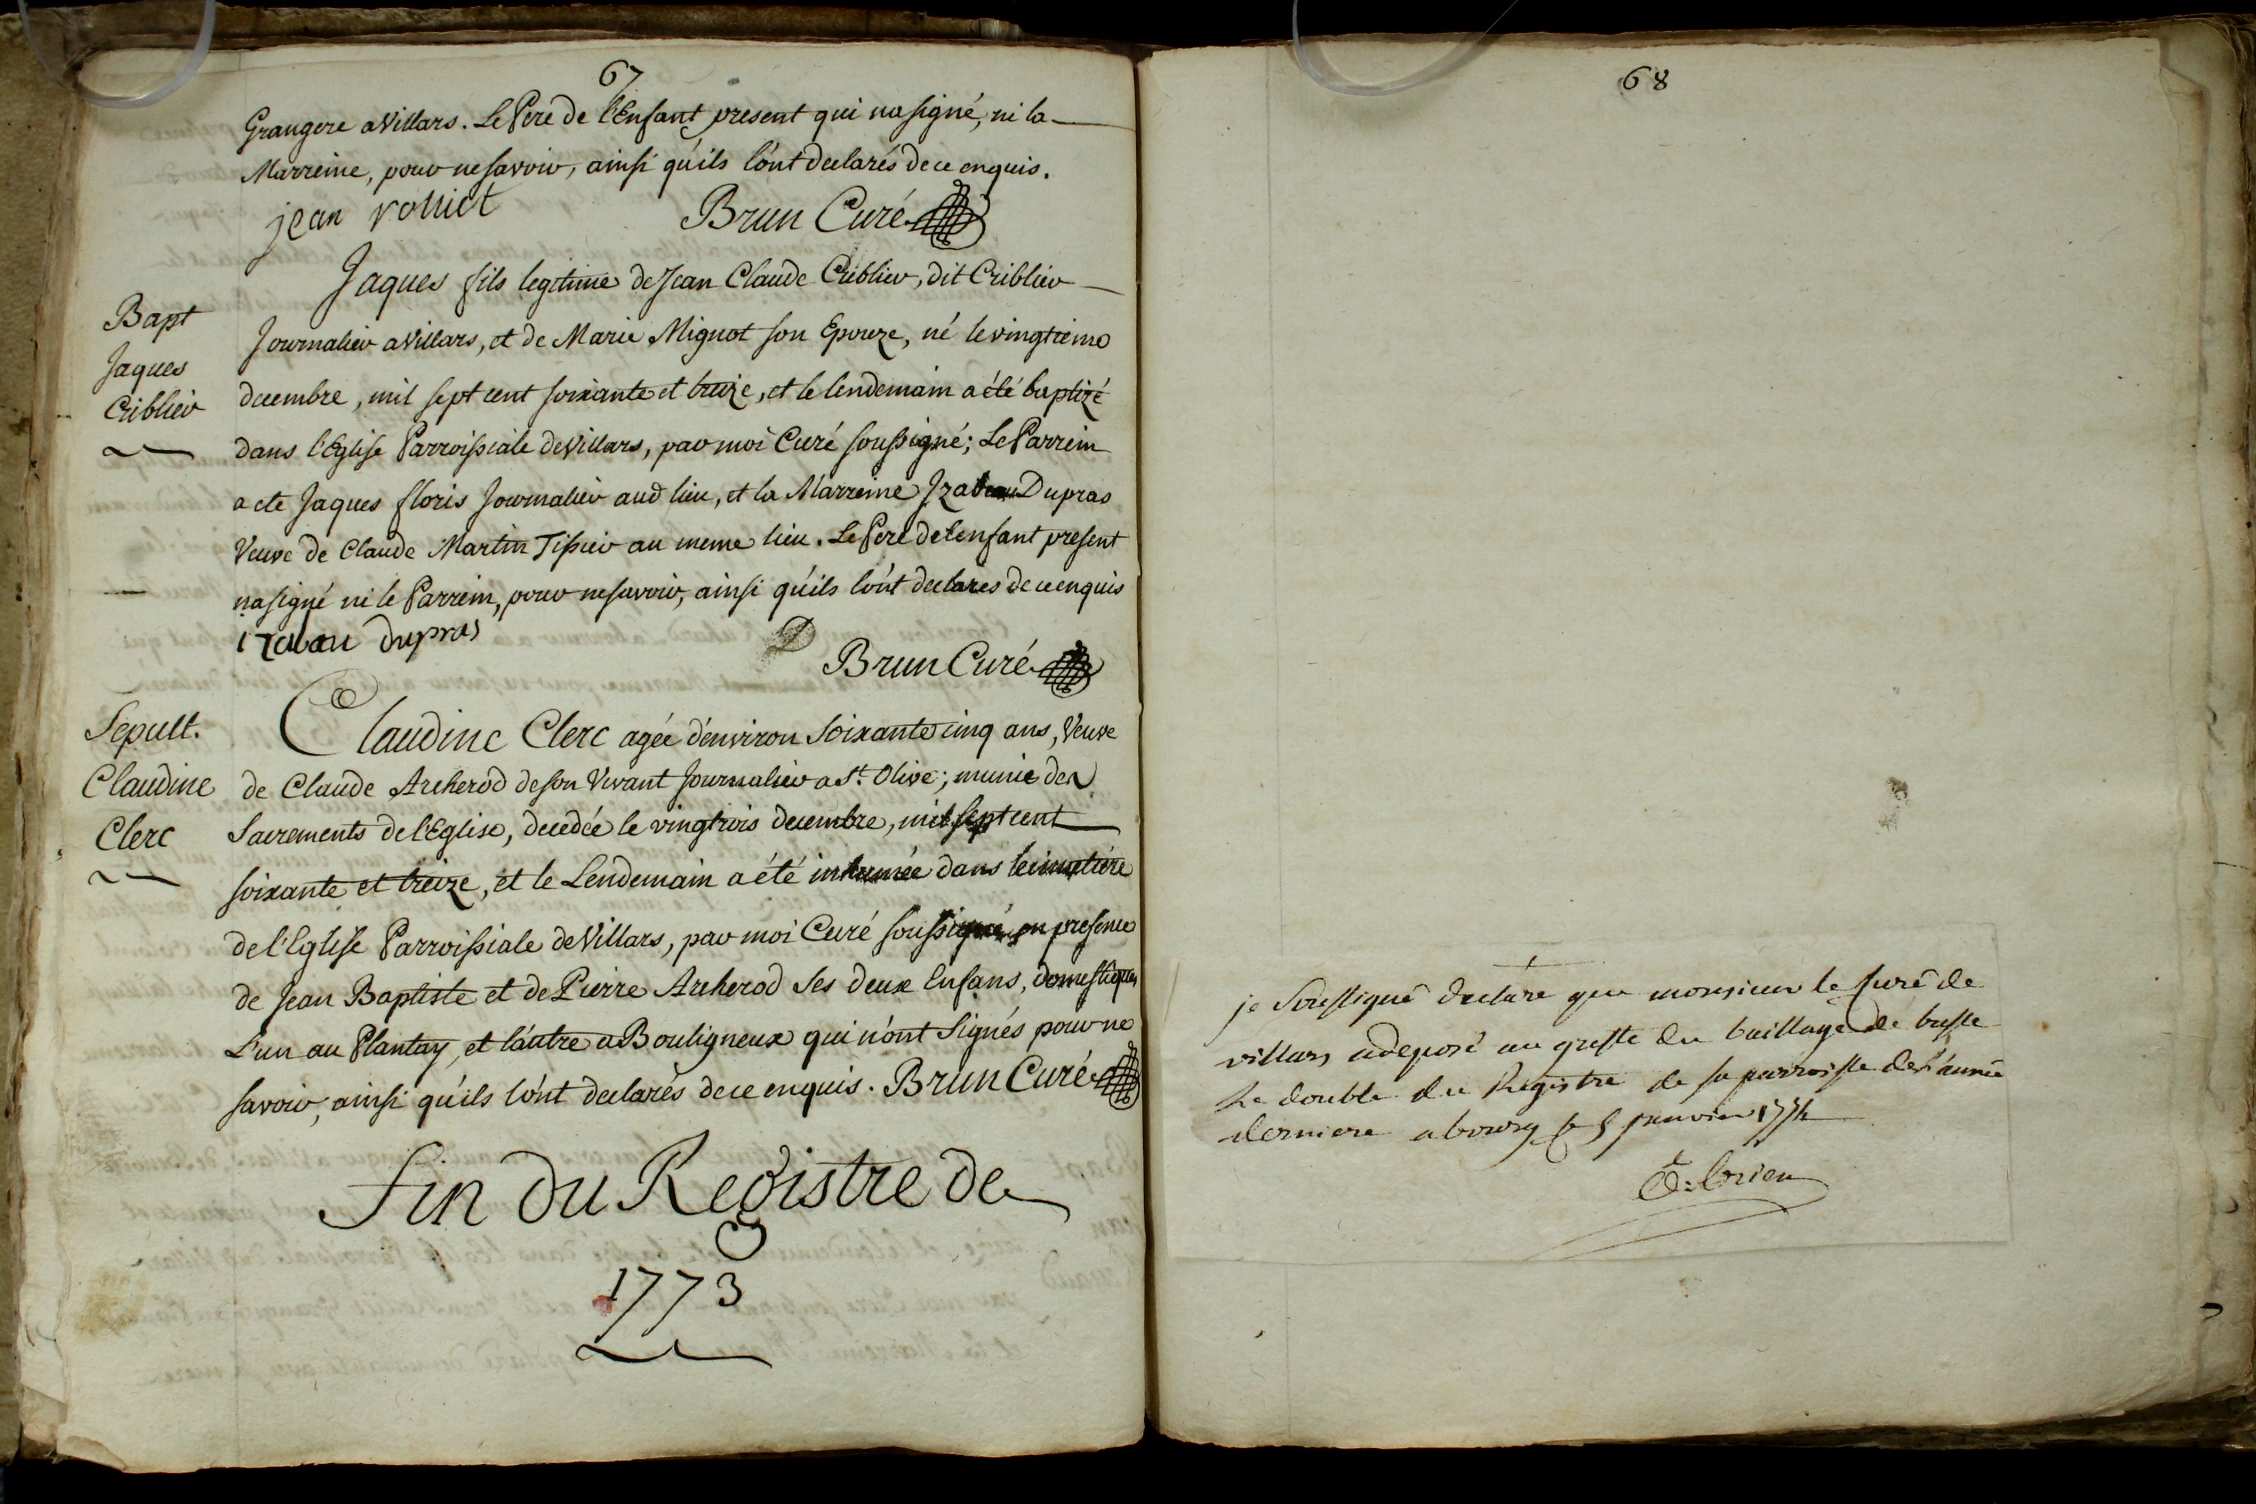 67
Grangere a Villars. Le Pere de l'Enfant present qui na signé, ni la
Marreine, pour ne savoir, ainsi qu'ils l'ont declarés de ce enquis.
jean
Brun Curé
Bapt
Jaques
Criblier
Jaques fils legitime de Jean Claude Criblier, dit Criblier
Journalier a Villars, et de Marie Mignot son Epouze, né le vingtieme
decembre, mil sept cent soixante et treize, et le lendemain a été baptizé
dans l'Eglise Parroissiale de Villars, par moi Curé soussigné; Le Parrein
a ete Jaques floris Journalier aud lieu, et la Marreine Izabeau Dupras
Veuve de Claude Martin Tissier au meme lieu. Le Pere de l'enfant present
na signé ni le Parrein, pour ne savoir, ainsi qu'ils l'ont declares de ce enquis
izabau dupras
Brun Curé
Sepult.
Claudine
Clerc
Claudine Clerc agée d'environ soixante cinq ans, Veuve
de Claude Archerod de son Vivant Journalier a St. Olive; munie des
Sacrements de l'Eglise, decedée le vingtrois decembre, mil sept cent
soixante et treize, et le Lendemain a été inhumée dans le cimetiére
de l'Eglise Parroissiale de Villars, par moi Curé soussigné, en presence
de Jean Baptiste et de Pierre Archerod ses deux Enfans, domestiques
L'un au Plantay, et l'autre a Bouligneux qui n'ont signés pour ne
savoir, ainsi qu'ils l'ont declarés de ce enquis. Brun Curé
Fin du Registre de
1773
68
je soussigné declare que monsieur le curé de
villars a deposé au greffe du bailliage de bresse
Le double du Registre de sa parroisse de l'année
derniere a bourg le 5 janvier 1774